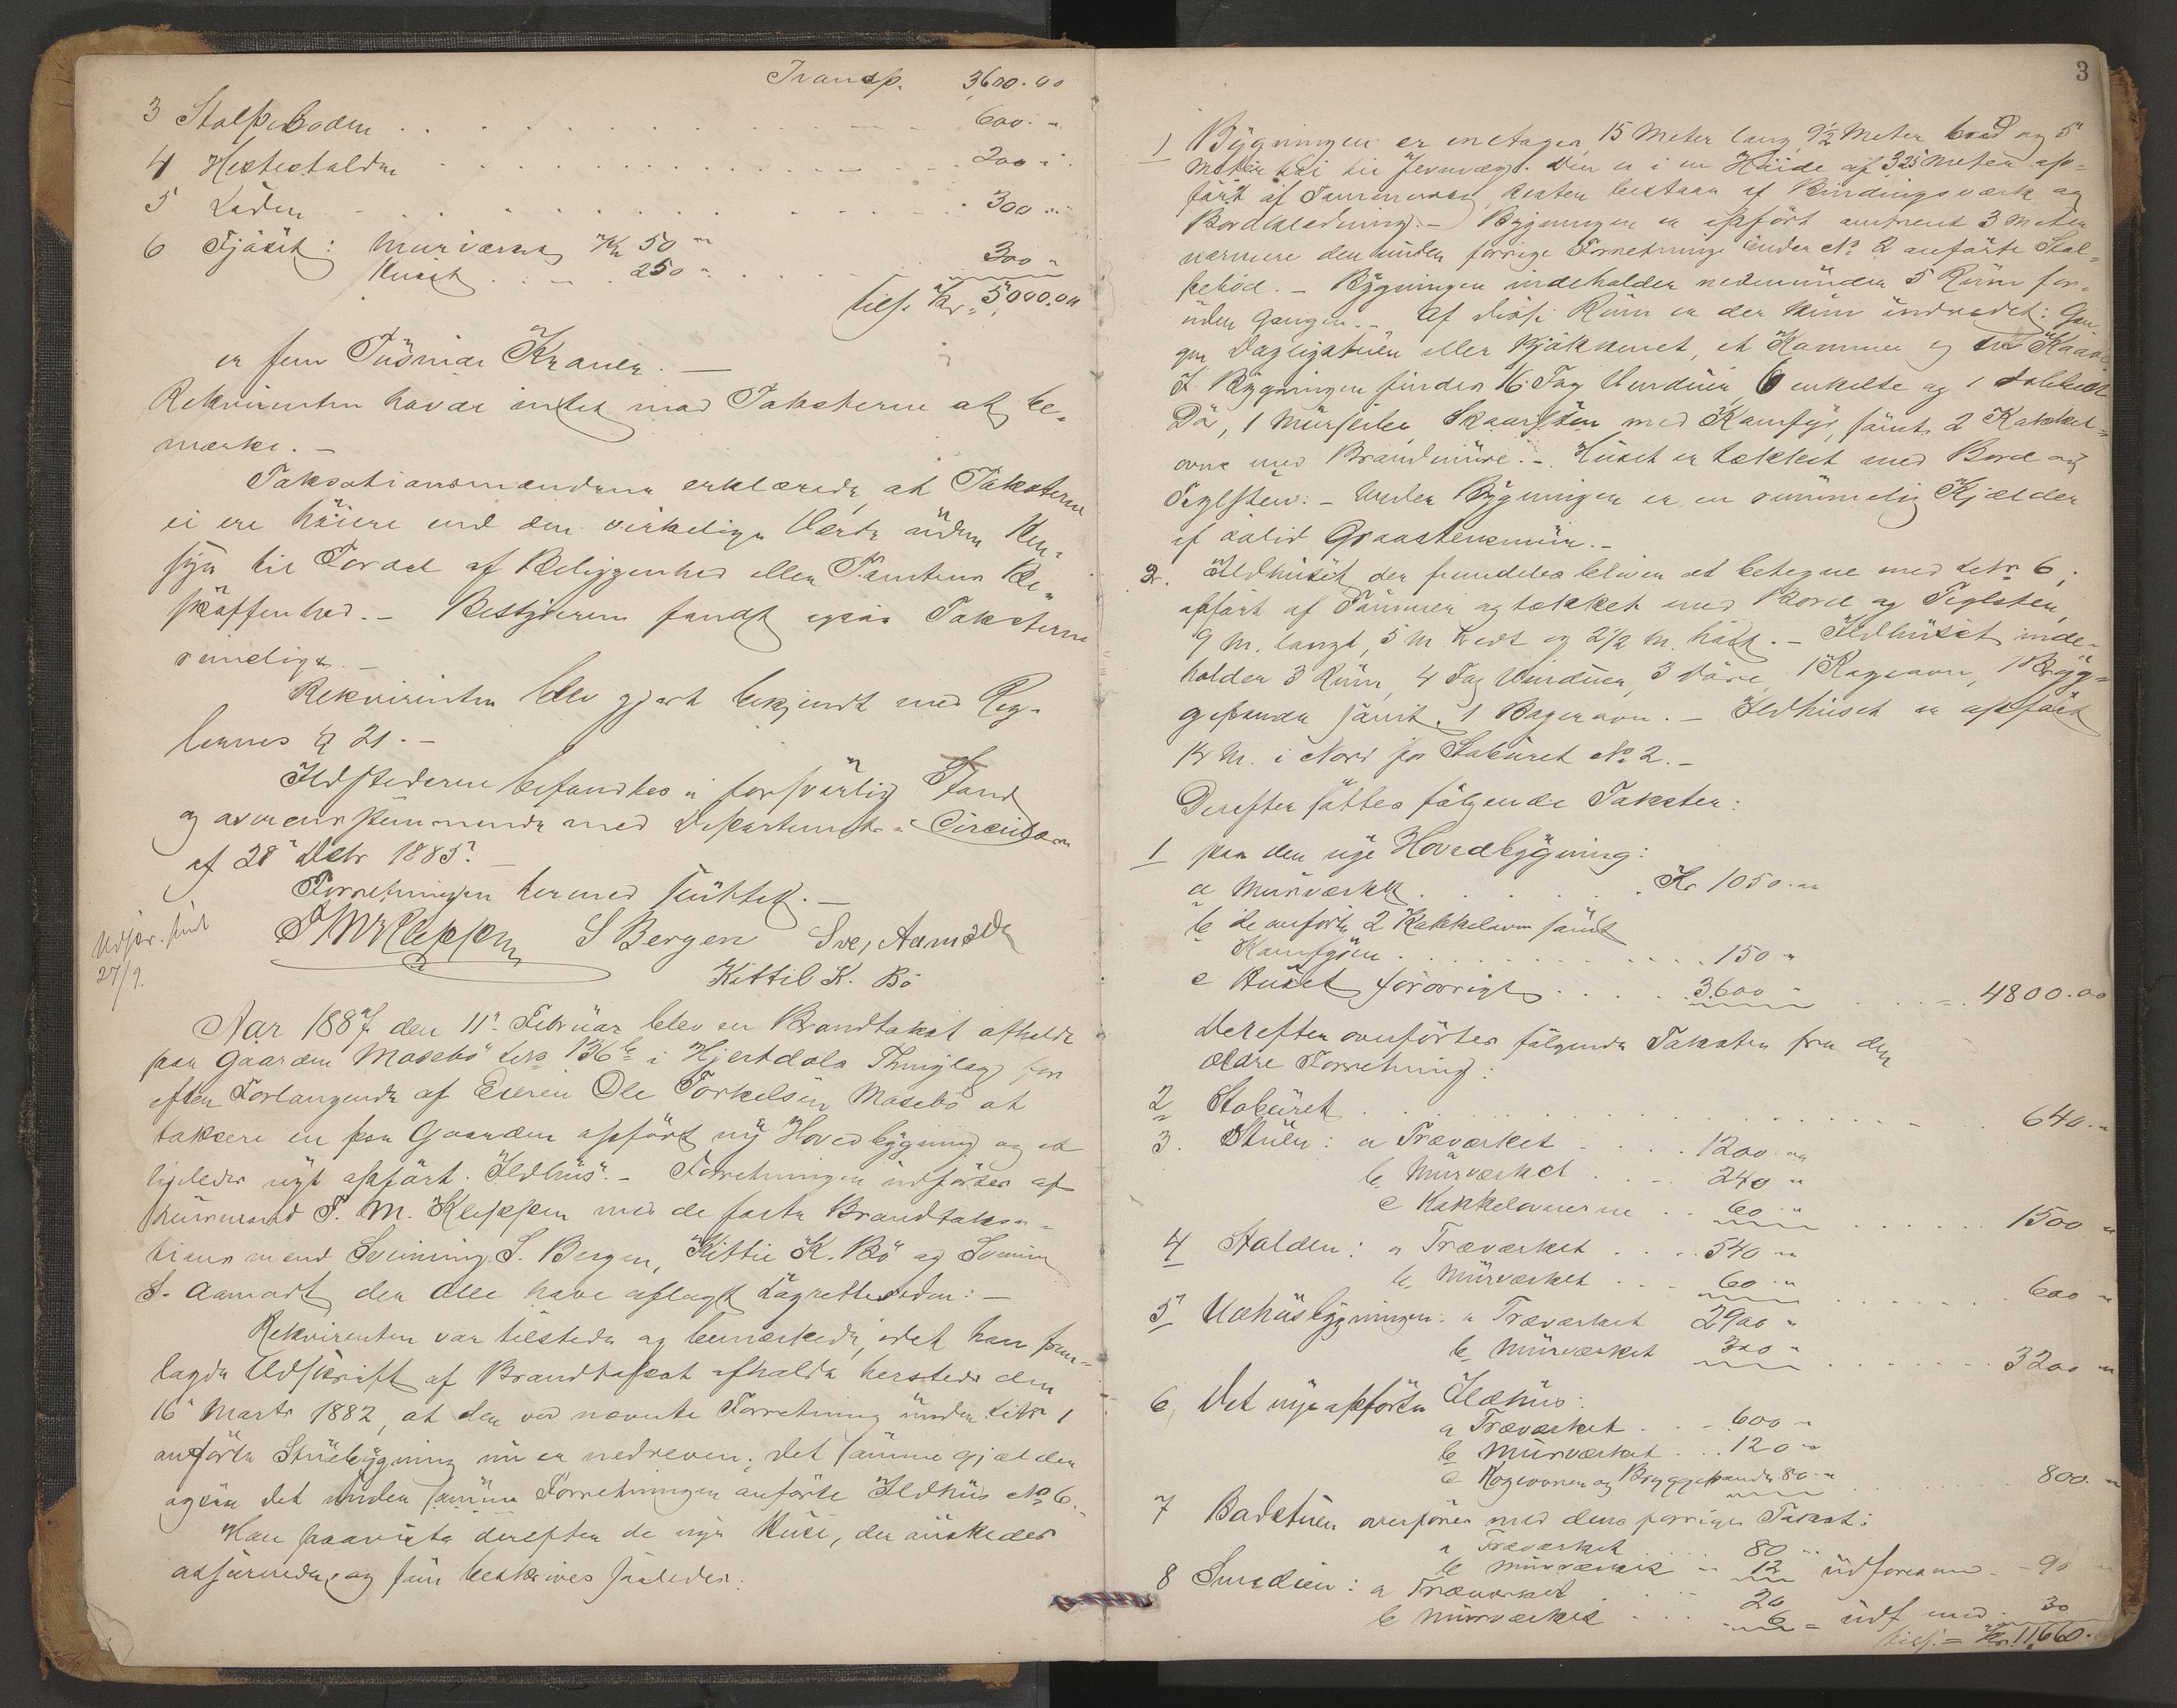 Transp. 3,600.00
3 Stolpeboden . . . . . . 600. "
4 Hestestalden . . . . . . 200 "
5 Laden . . . . . . 300 "
6 Fjøset: Murværket Kr 50 "
Huset . . . 250 " . . . . 300 "
tils. Kr. 5,000.00
er fem Tusinde Kroner. —
Rekvirenten havde intet mod Taksterne at be-
mærke. —
Taksationsmændene erklærede, at Taksterne
ei ere høiere end den virkelige Værdi uden Hen-
syn til Fordel af Beliggenhed eller Tomtens Be-
skaffenhed. — Bestyreren fandt ogsaa Taksterne
rimelige. —
Rekvirenten blev gjort bekjendt med Reg-
lernes § 21. —
Ildstederne befandtes i forsvarlig Stand
og overensstemmende med Departementets Circulære
af 28de Debr 1885. —
Forretningen hermed sluttet. —
T M Kleppen S Bergen Sve, Aamodt
Kittil K. Bö
Udskr. sendt
27/9.
Aar 1887 den 11te Februar blev en Brandtakst afholdt
paa Gaarden Mosebö 136 b i Hjertdals Thinglag
efter Forlangende af Eieren Ole Torkelsen Mosebö at
taksere en paa Gaarden opført ny Hovedbygning og et
ligeledes nyt opført Ildhus. — Forretningen udførtes af
Lensmand T. M. Kleppen med de faste Brandtaksa-
tionsmænd Sveinung S. Bergen, Kittil K. Bö og Svenung
S. Aamodt, der alle have aflagt Lagretteseden: —
Rekvirenten var tilstede og bemærkede, idet han frem-
lagde Udskrift af Brandtakst afholdt hersteds den
16de Marts 1882, at den ved nævnte Forretning under Litr 1
anførte Stuebygning nu er nedreven; det samme gjælder
ogsaa det under samme Forretningen anførte Ildhus No 6. —
Han paaviste derefter de nye Huse, der ønskedes
assureret, og som beskrives saaledes:
3
1) Bygningen er enetages, 15 Meter lang, 9½ Meter bred og 5
Meter høi til Jevnvægt. Den er i en Høide af 3,25 Meter op-
ført af Tømmer, Resten bestaar af Bindingsværk og
Bordklædning. — Bygningen er opført omtrent 3 Meter
nærmere den under forrige Forretning under No 2 anførte Stol-
pebod. — Bygningen indeholder nedenunder 5 Rum for-
uden Gangen. — Af disse Rum er der kun indredet: Gan-
gen, Dagligstuen eller Kjøkkenet, et Kammer og en
I Bygningen findes 16 Fag Vinduer, 6 enkelte og 1 dobbelt
Dør, 1 Skaarsten med Komfyr, samt 2 Kakkel-
ovne med Brandmure. — Huset er tækket med Bord og
Teglsten. — Under Bygningen er en rummelig Kjælder
af solid Graastensmur. —
2. Ildhuset, der fremdeles bliver at betegne med Litr 6,
opført af Tømmer og tækket med Bord og Teglsten,
9 M. langt, 5 M. bredt og 2½ M. høit. — Ildhuset inde-
holder 3 Rum, 4 Fag Vinduer, 3 Døre, 1 Kogeovn, 1 Bryg-
gepande samt 1 Bagerovn. — Ildhuset er opført
14 M. i Nord for Staburet No 2. —
Derefter sattes følgende Takster:
1 paa den nye Hovedbygning:
a Murværket . . . . Kr 1050. "
b de anførte 2 Kakkelovne samt
Komfyren . . . . . . 150 "
c Huset forøvrigt . . . . 3,600 " . . . . 4800.00
Derefter overførtes følgende Takster fra den
ældre Forretning:
2 Staburet . . . . . . 640. "
3. Stuen: a Træværket . . . . 1200. "
b Murværket . . . 240 "
c Kakkelovnerne . . 60 " . . . . 1500 "
4 Stalden: a Træværket . . . . 540 "
b Murværket . . . 60 " . . . . 600 "
5 Udhusbygningen: a Træværket 2900 "
b Murværket 300 " . . . . 3200 "
6 Det nye opførte Ildhus:
a Træværket . . . 600 "
b Murværket . . . 120 "
c Kogeovnen og Bryggepande 80 " . . . . 800. "
7 Badstuen overføres med dens forrige Takst:
a Træværket . . . 80 "
b Murværket " 12 udføres med 90 "
8 Smedien: a Træværket . . . 20
b Murværket . . . 6 = udf. med 30
tils. = Kr. 11,660. "